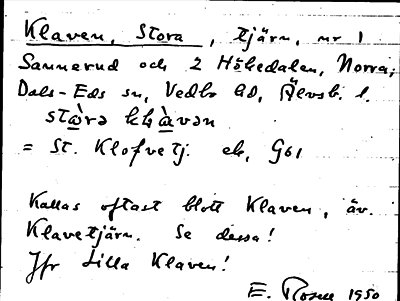 Klaven, Stora, tjärn, nr 1
Sannerud och 2 Hökedalen, Norra,
Dals-Eds sn, Vedbo hd, Älvsb. l.
stɷ̀rə kḷɑ̀vən
= St. Klofvetj. ek, G61
Kallas oftast blott Klaven, äv.
Klavetjärn. Se dessa!
Jfr Lilla Klaven!
E. Rosell 1950